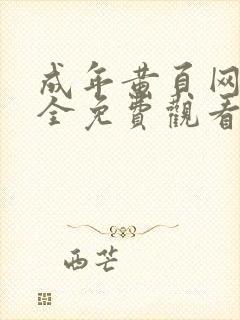 成年黄頁网
全免費觀看
西芒